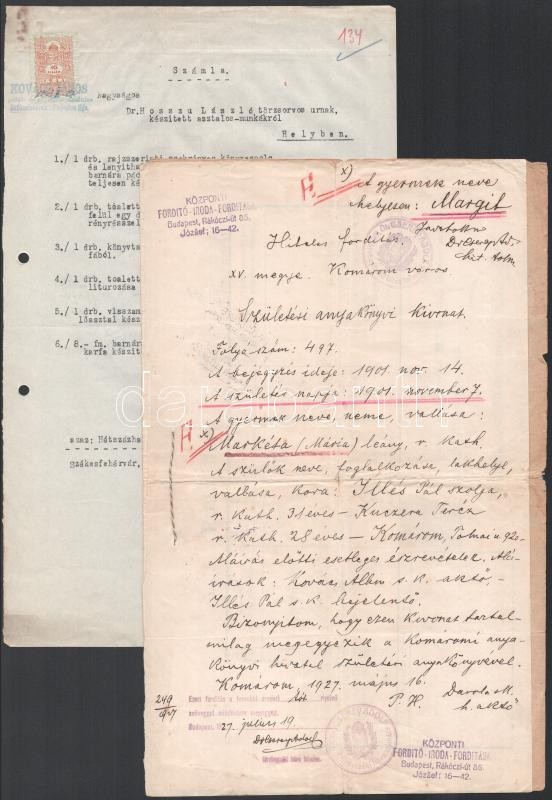 134
Számla.
Nagyságos
Dr. Hosszu László törzsorvos urnak,
készitett asztalos-munkákról
Helyben.
1./ 1 drb. rajzszerinti
és lenyitha
bernára pác
teljesen ké
2./ 1 drb. toalett
felül egy d
rényrészel
3./ 1 drb. könyvta
fából.
4./ 1 drb. toalett
liturozása
5./ 1 drb. visszam
lőasztal kész
6./ 8.- fm. barnára
karfa készit
azaz: Hétszázha
Székesfehérvár,
KÖZPONTI
FORDITÓ-IRODA-FORDITÁSA
Budapest, Rákóczi-út 85.
József: 16-42.
x)
A gyermek neve
helyesen: Margit
Javította
Hiteles fordítás.
hit. tolm.
XV. megye. Komárom város.
Születési anyakönyvi kivonat.
Folyó szám: 497.
A bejegyzés ideje: 1901. nov. 14.
A születés napja: 1901. november 7.
A gyermek neve, neme, vallása:
x)
Markéta (Mária) leány, r. kath.
A szülők neve, foglalkozása, lakhelye,
vallása, kora: Illés Pál szolga,
r. kath. 31 éves – Kuczera Teréz
r. kath. 28 éves – Komárom, Tolnai u. 920
Aláírás előtti esetleges észrevételek. Alá-
írások: Kovács Albin s. k. aktő,
Illés Pál s. k. bejelentő.
Bizonyítom, hogy ezen kivonat tartal-
milag megegyezik a komáromi anya-
könyvi hivatal születési anyakönyvével.
Komárom, 1927. május 16.
P. H.
h. aktő
249
Ezen forditás a
Budapest, 1927. julius 19.
KÖZPONTI
FORDITÓ-IRODA-FORDITÁSA
Budapest, Rákóczi-út 85.
József: 16-42.